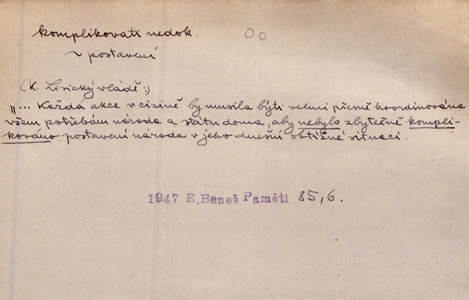 komplikovati nedok.
~ postavení
(K. Lisický vládě:)
„... Každá akce v cizině by musila býti velmi přesně koordinována
všem potřebám národa a státu doma, aby nebylo zbytečně kompli-
kováno postavení národa v jeho dnešní obtížné situaci.
1947 E. Beneš Paměti 85,6.